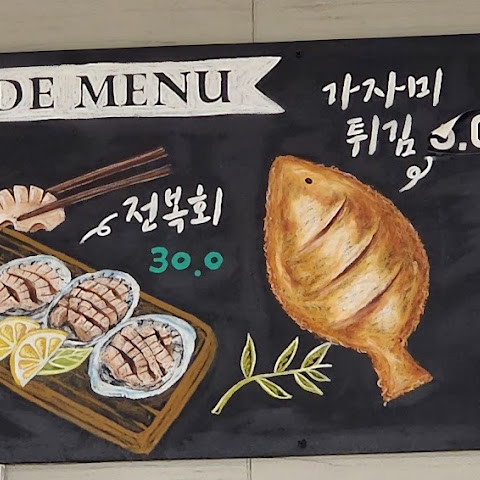 DE MENU
가자미
튀김
전복회
30.0